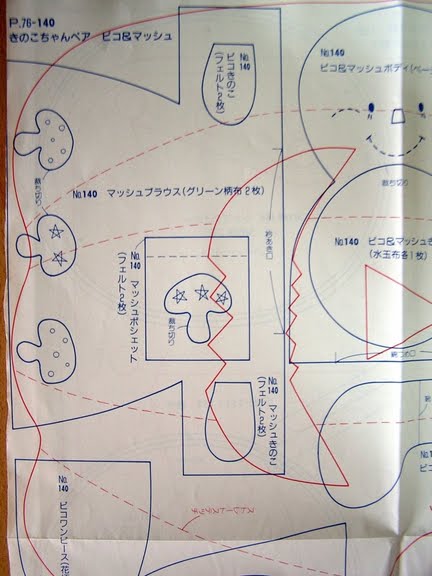 P.76-140
きのこちゃんペア ピコ&マッシュ
No.140
ピコきのこ
(フェルト2枚)
No.140
ピコ&マッシュボディ(ベー
裁ち切り
裁ち切り
No.140 マッシュブラウス(グリーン柄布2枚)
衿あき口
No.140
マッシュポシェット
(フェルト2枚)
裁ち切り
No.140 ピコ&マッシュき
(水玉布各1枚)
No.140
マッシュきのこ
(フェルト2枚)
No.140
ピコワンピース(花
ストレートステッチ
No.1
ピコ